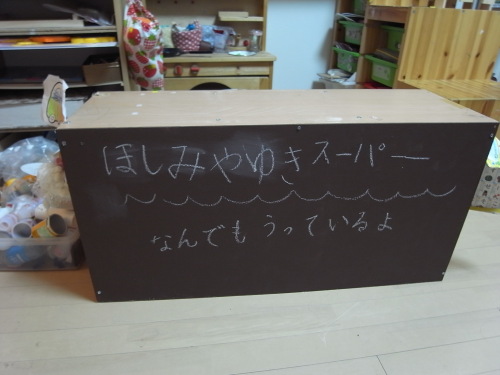 ほしみやゆきスーパー
なんでもうっているよ